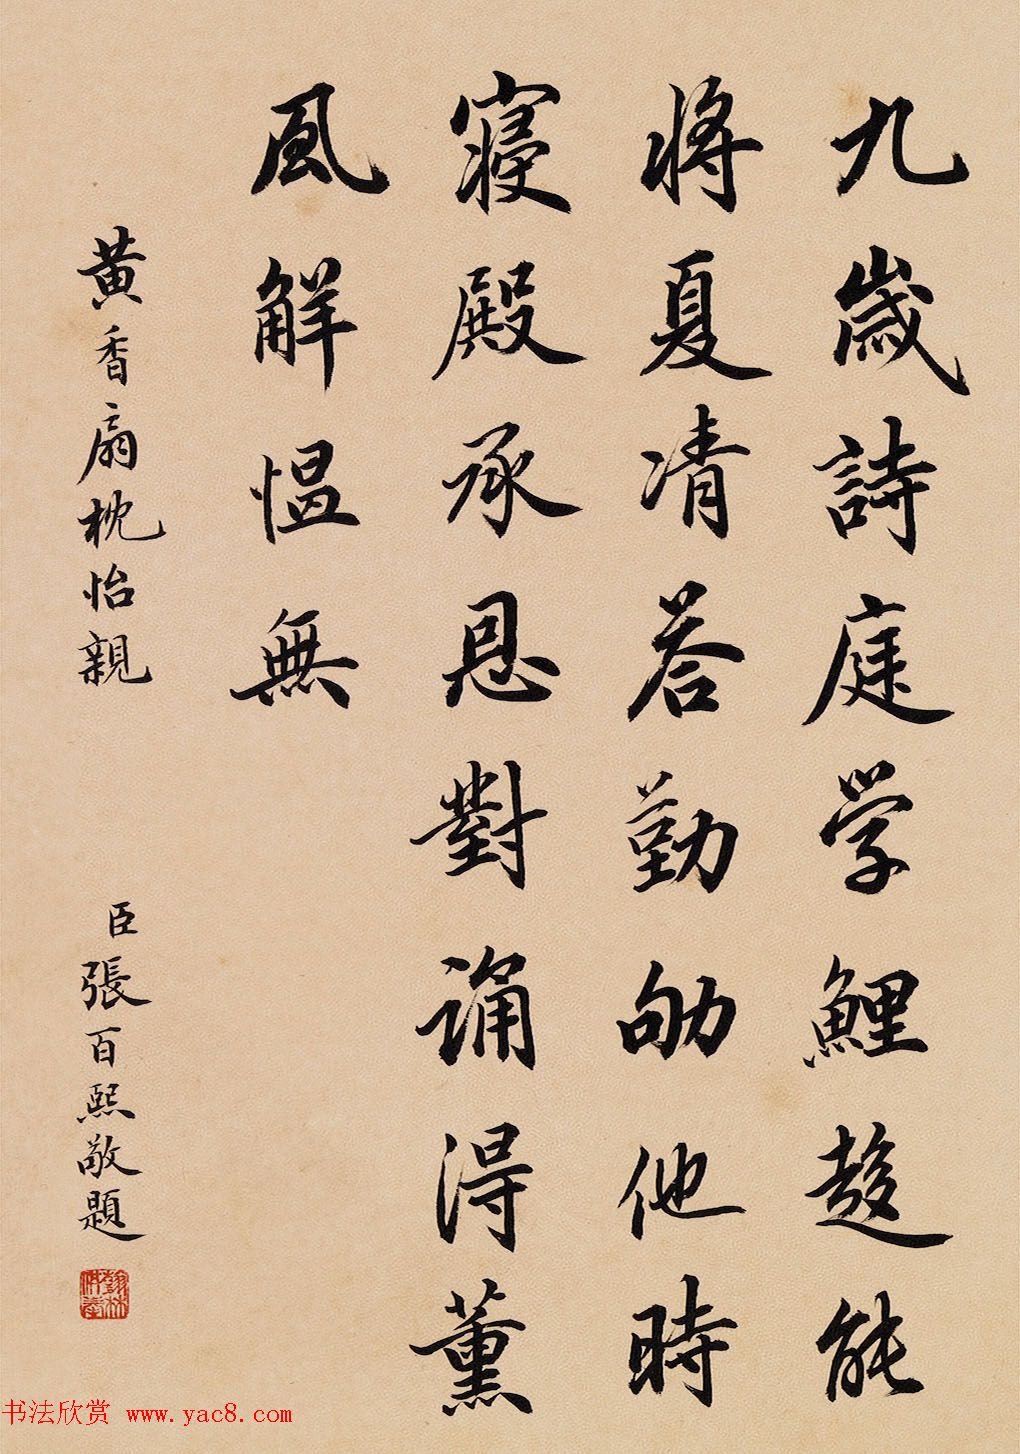 九歲詩庭学鯉趍能
將夏凊答勤劬他時
寢殿承恩對誦得薰
風解愠無
黄香扇枕怡親
臣張百熙敬題
书法欣赏 www.yac8.com